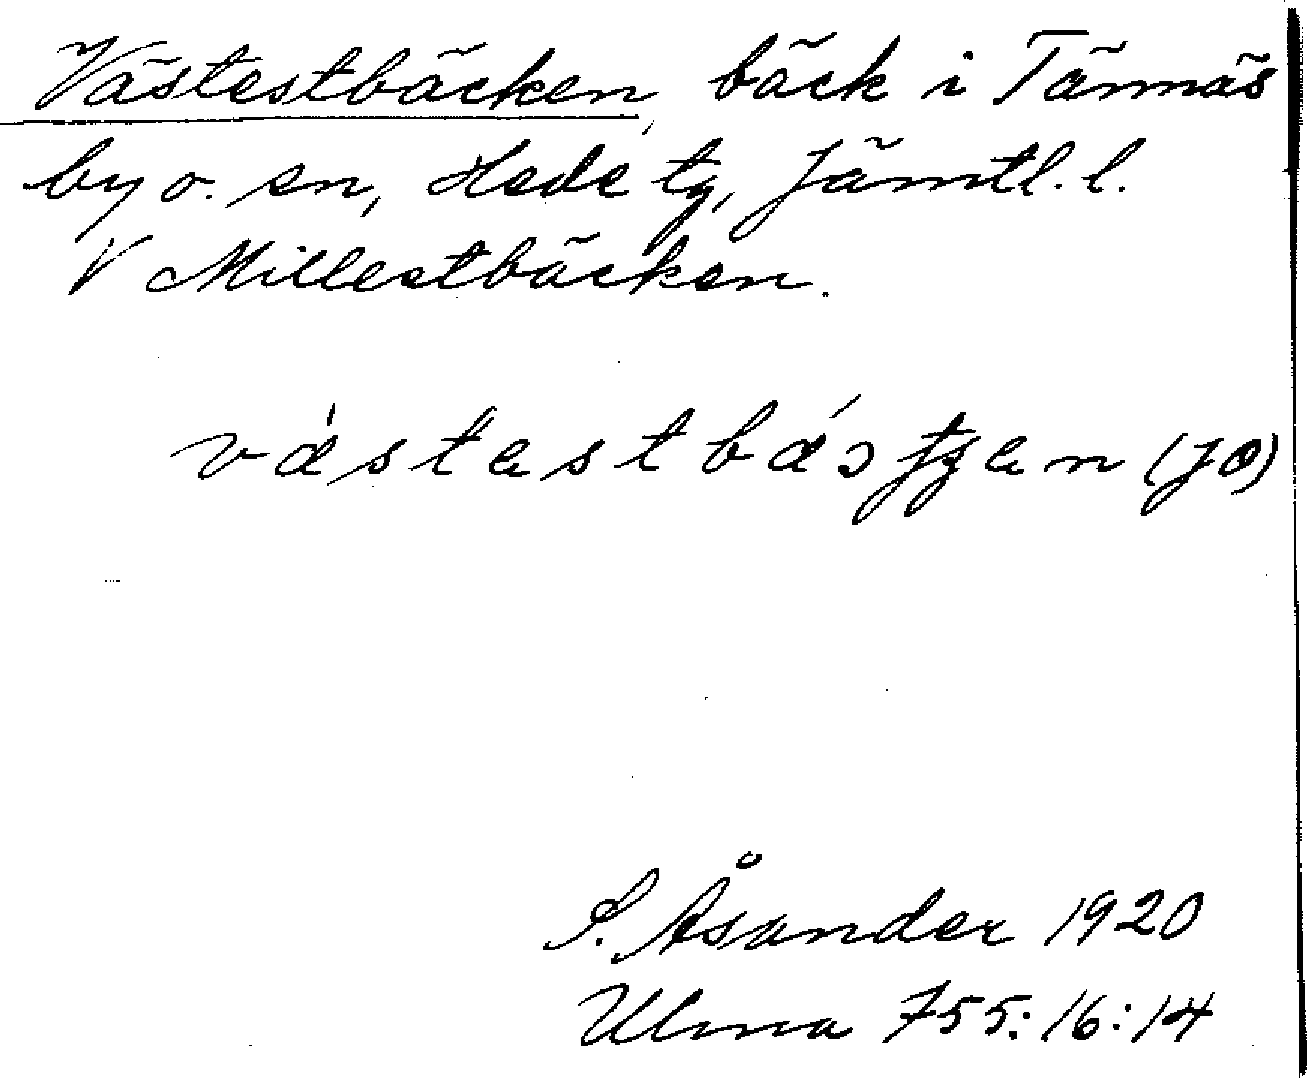 Västestbäcken, bäck i Tännäs
by o. sn, Hede tg, Jämtl. l.
V Millestbäcken.
(JO)
S. Åsander 1920
Ulma 755:16:14